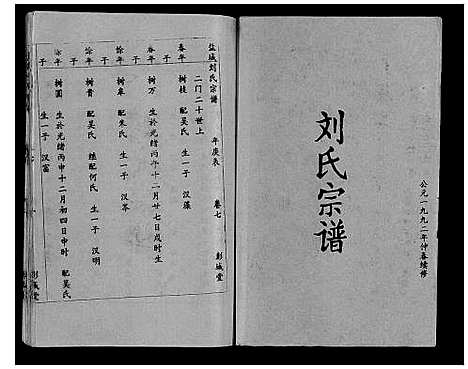 公元一九九二年仲春续修
刘氏宗谱
盐城刘氏宗谱 年庚表 卷七 彭城堂
二门二十世上
春年 树枝 配吴氏 生一子 汉藻
子
春年 树万 生於光绪丙午十二月廿七日戌时生
子
馀年 树皋 配朱氏 生一子 汉岑
子
馀年 树贵 配吴氏 继配何氏 生一子 汉明
子
年 树圆 生於光绪丙申十二月初四日申时 配吴氏
子 生一子 汉富
彭城堂